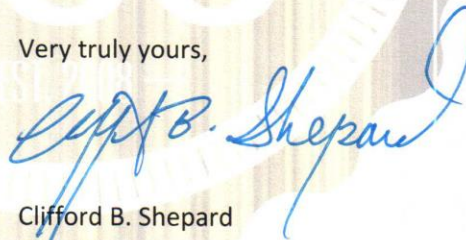 Very truly yours,
EST. 2018
Cliff B. Shepard
Clifford B. Shepard